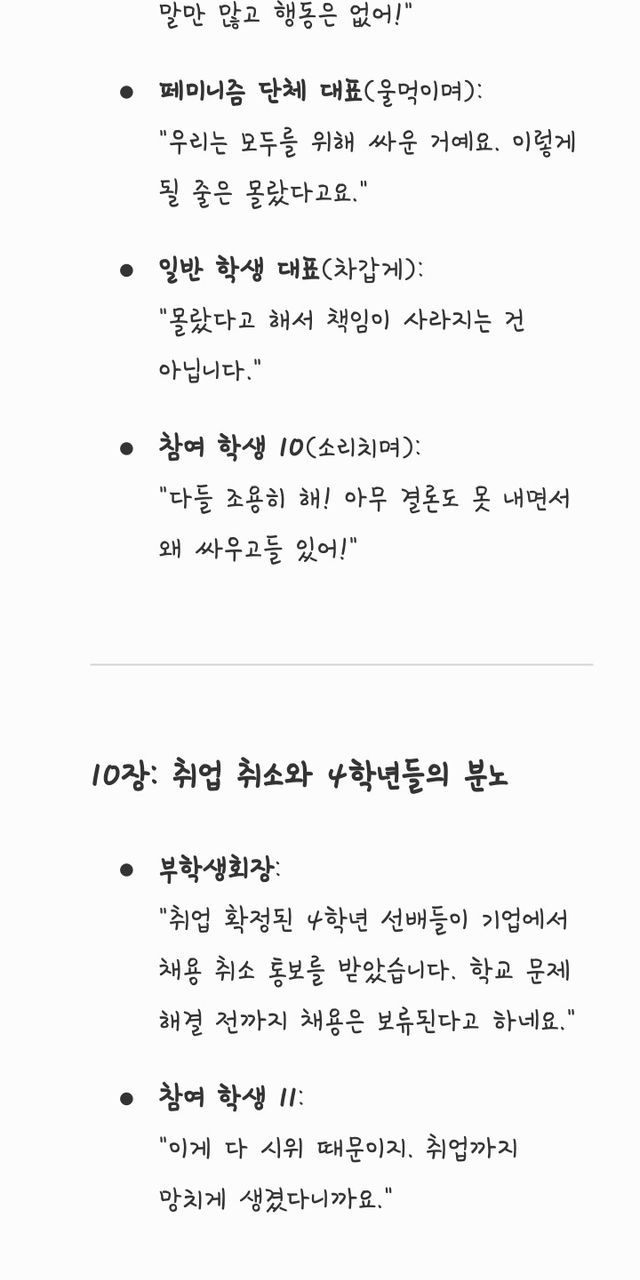 말만 많고 행동은 없어!"
페미니즘 단체 대표(울먹이며):
"우리는 모두를 위해 싸운 거예요. 이렇게
될 줄은 몰랐다고요."
일반 학생 대표(차갑게):
"몰랐다고 해서 책임이 사라지는 건
아닙니다."
참여 학생 10(소리치며):
"다들 조용히 해! 아무 결론도 못 내면서
왜 싸우고들 있어!"
10장: 취업 취소와 4학년들의 분노
부학생회장:
"취업 확정된 4학년 선배들이 기업에서
채용 취소 통보를 받았습니다. 학교 문제
해결 전까지 채용은 보류된다고 하네요."
참여 학생 11:
"이게 다 시위 때문이지. 취업까지
망치게 생겼다니까요."